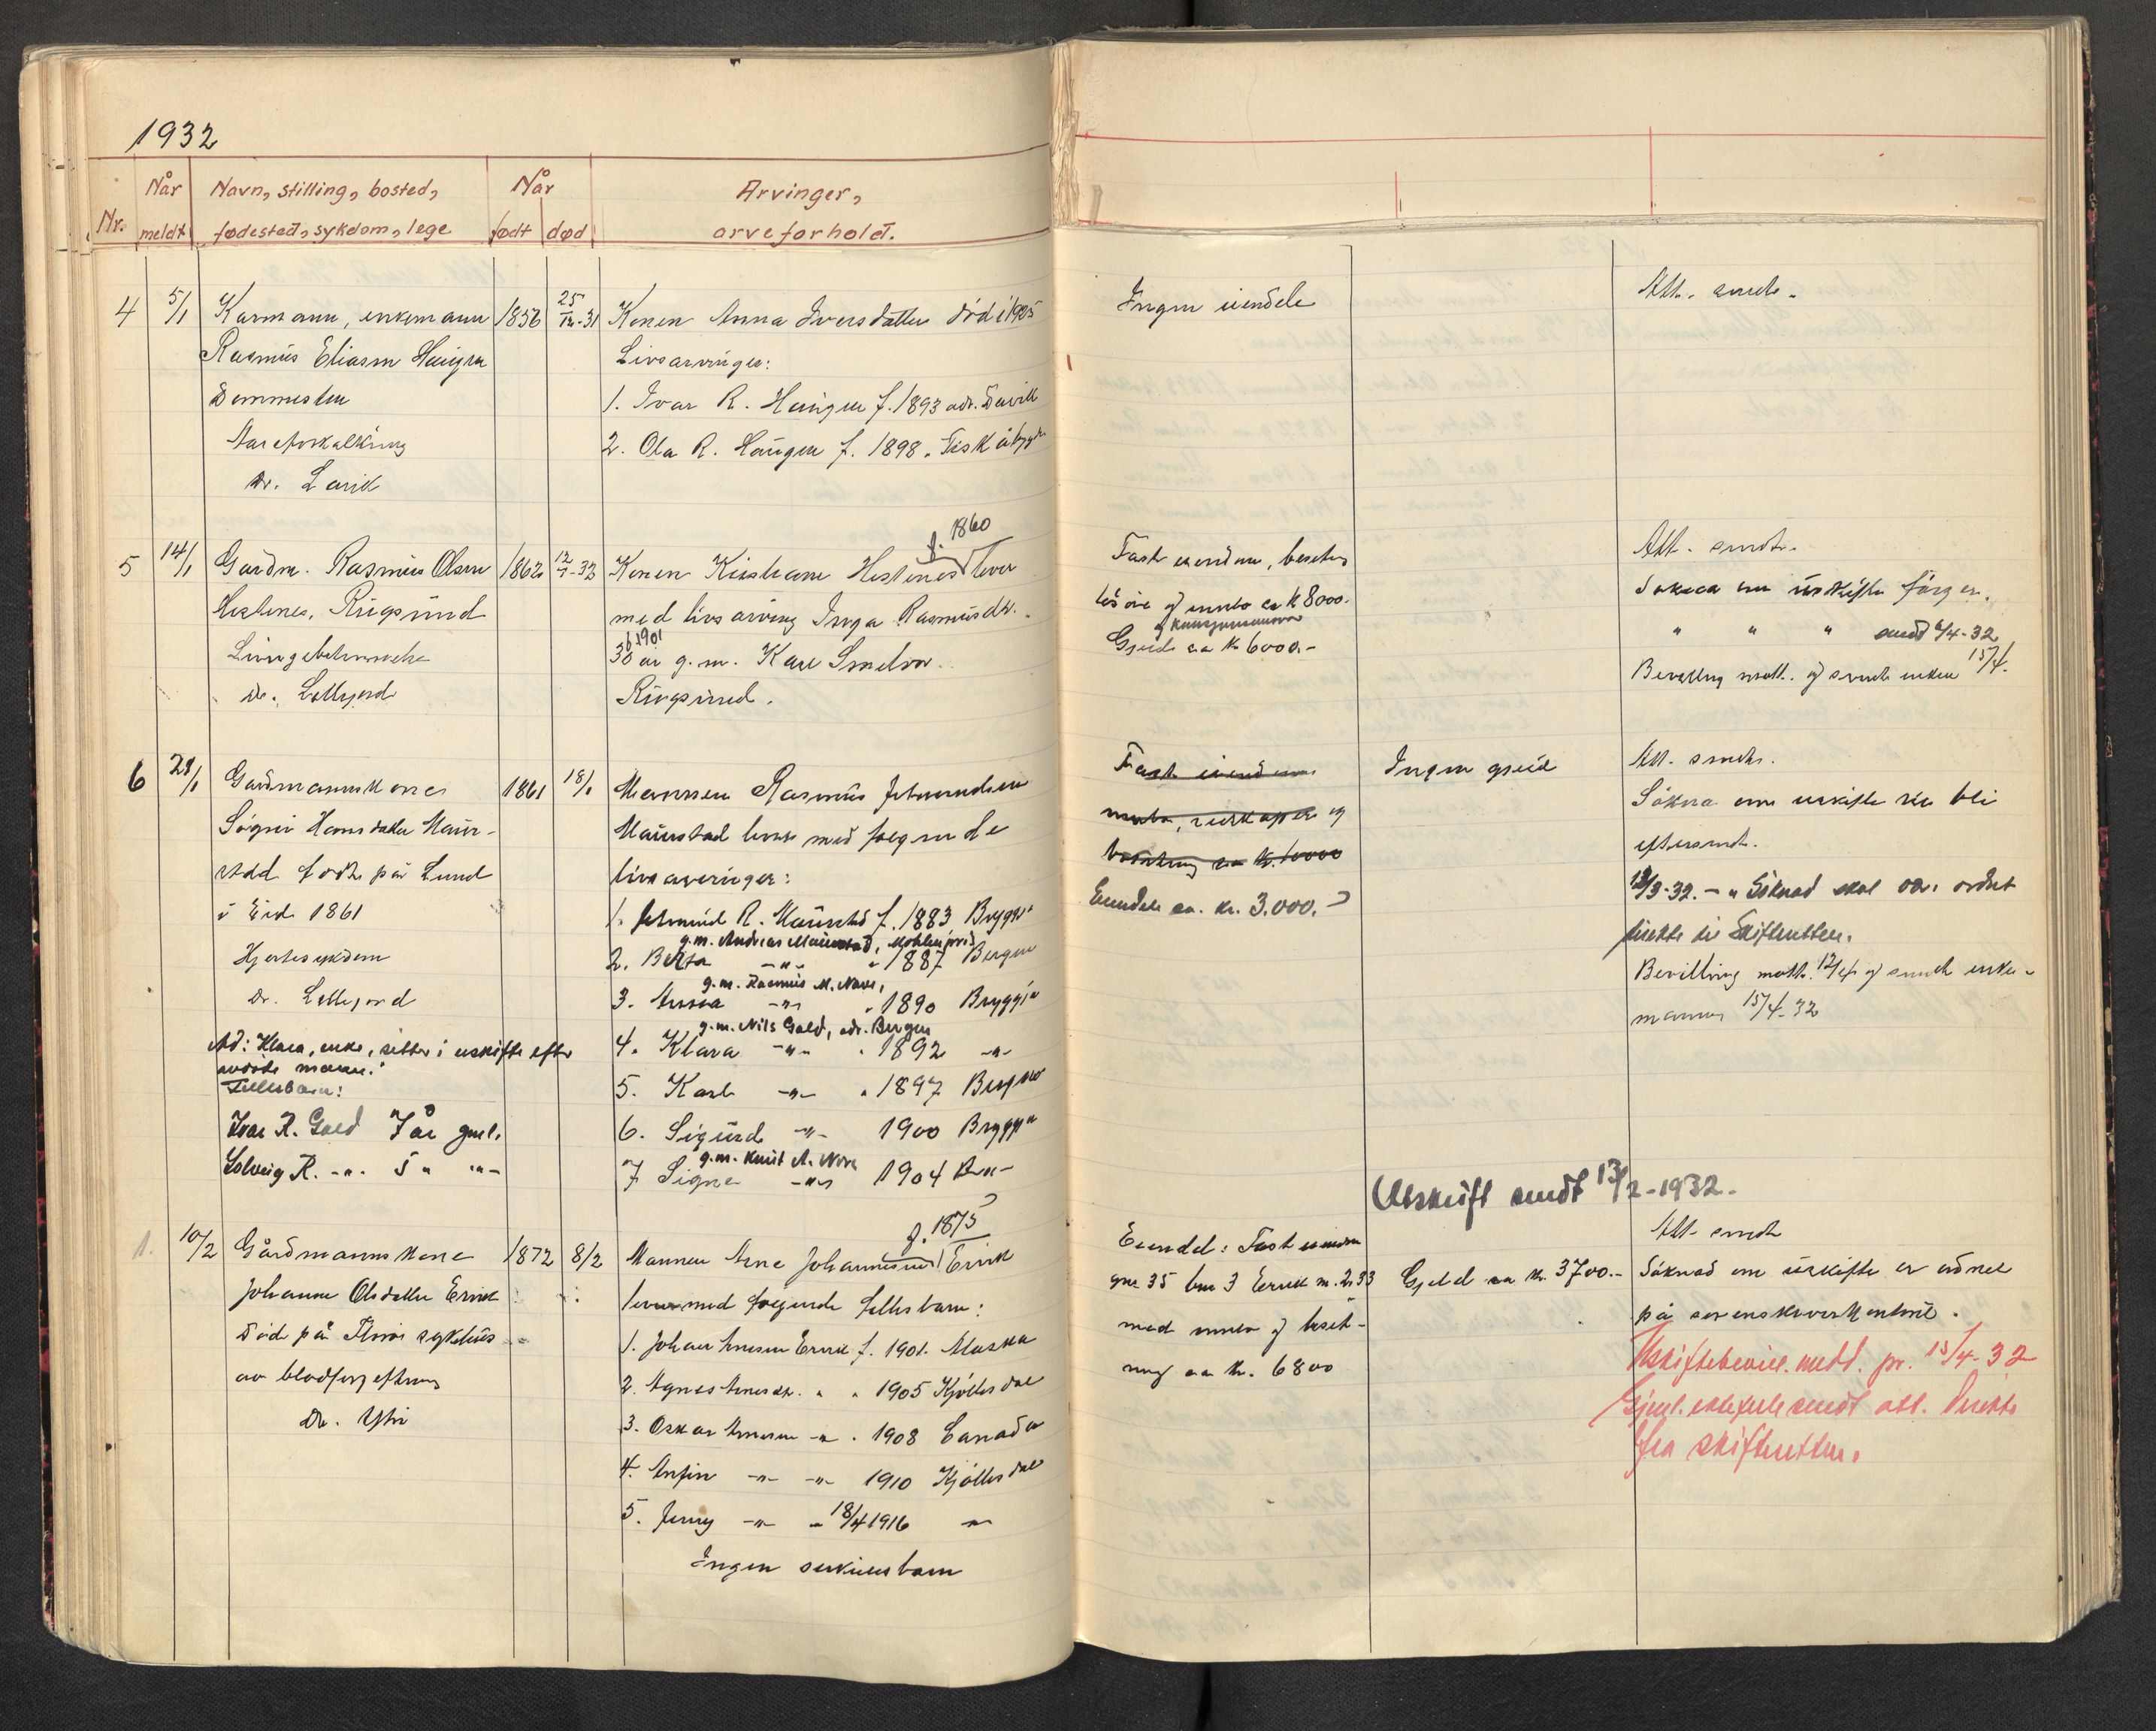 1932
Nr.
Når
meldt
Navn, stilling, bosted,
fødested, sykdom, lege
Når
født død
Arvinger,
arveforhold.
4 5/1 Kårmann, enkemann 1856 25/12-31 Konen Anna Iversdatter død i 1925
Rasmus Eliasen Haugen Livsarvinger:
Dommesten 1. Ivar R. Haugen f. 1893 adr. Davik
Åreforkalkning 2. Ola R. Haugen f. 1898.
Dr.
Ingen eiendele
Att. sendt.
f. 1860
5 14/1 Gårdm. Rasmus Olsen 1862 12/1-32 Konen Kristiane Hestenes lever
Hestenes, Rugsund med livsarving Inga Rasmusdtr.
f. 1901
Lungebetennelse 30 år g.m. Kåre Smelvær
Dr. Lillejord Rugsund.
Fast eiendom, besetn
løsøre og innbo ca kr 8000.
Gjeld ca kr 6000.-
Att. sendt.
Søknad om uskifte
" " " sendt 6/4-32
Bevilling mott. og sendt enken 15/4.
6 21/1 Gårdmannskone 1861 18/1 Mannen Rasmus Jetmundsen
Søgni Hansdatter Maur- Maurstad lever med følgende
stad født på Lund livsarvinger:
i Eid 1861 1. Jetmund R. Maurstad f. 1883 Bryggja
g.m. Andreas Maurstad,
Hjertesykdom 2. Berta -"- " 1887 Bergen
g.m. Rasmus M. Nave,
Dr. Lillejord 3. Anna -"- " 1890 Bryggja
g.m. Nils Gald, adr. Bergen
Ad: Klara, enke, sitter i uskifte efter 4. Klara -"- " 1892 -"-
avdøde mann.
Fellesbarn: 5. Karl -"- " 1897 Bergen
Ivar R. Gald 7 år gml. 6. Sigurd -"- 1900 Bryggja
g.m. Knut A. Nave
Solveig R. -"- 5 " -"- 7 Signe -"- 1904 -"-
Fast eiendom
innbo, redskaper og
besetning ca kr. 6000
Eiendele ca. kr. 3.000.-
Ingen gjeld
Att. sendt.
Søknad om uskifte vil bli
eftersendt.
12/3-32. - " Søknad skal være ordnet
direkte til Skifteretten.
Bevilling mott. 12/4 og sendt enke-
mannen 15/4-32
Utskrift sendt 13/2-1932.
f. 1875
1. 10/2 Gårdmannskone 1872 8/2 Mannen Arne Johannessen Ervik
Johanne Olsdatter Ervik lever med følgende fellesbarn:
død på Florø sykehus 1. Johan Arnesen Ervik f. 1901. Alaska
av blodforgiftning 2. Agnes Arnesdt. " " 1905 Kjølsdal
Dr. Ytri 3. Oskar Arnesen -"- " 1908 Canada
4. Anfin -"- -"- 1910 Kjølsdal
5. Jenny -"- -"- 18/4 1916 -"-
Ingen særkullsbarn
Eiendel: Fast eiendom
gnr 35 bnr 3 Ervik m. 2.33
med innbo og beset-
ning ca kr. 6800
Gjeld ca kr. 3700.-
Att sendt
Søknad om uskifte er ordnet
på sorenskriverkontoret.
Uskiftebevill. medd. pr. 15/4-32
Gjenl. ektefelle sendt att. direkte
fra skifteretten.